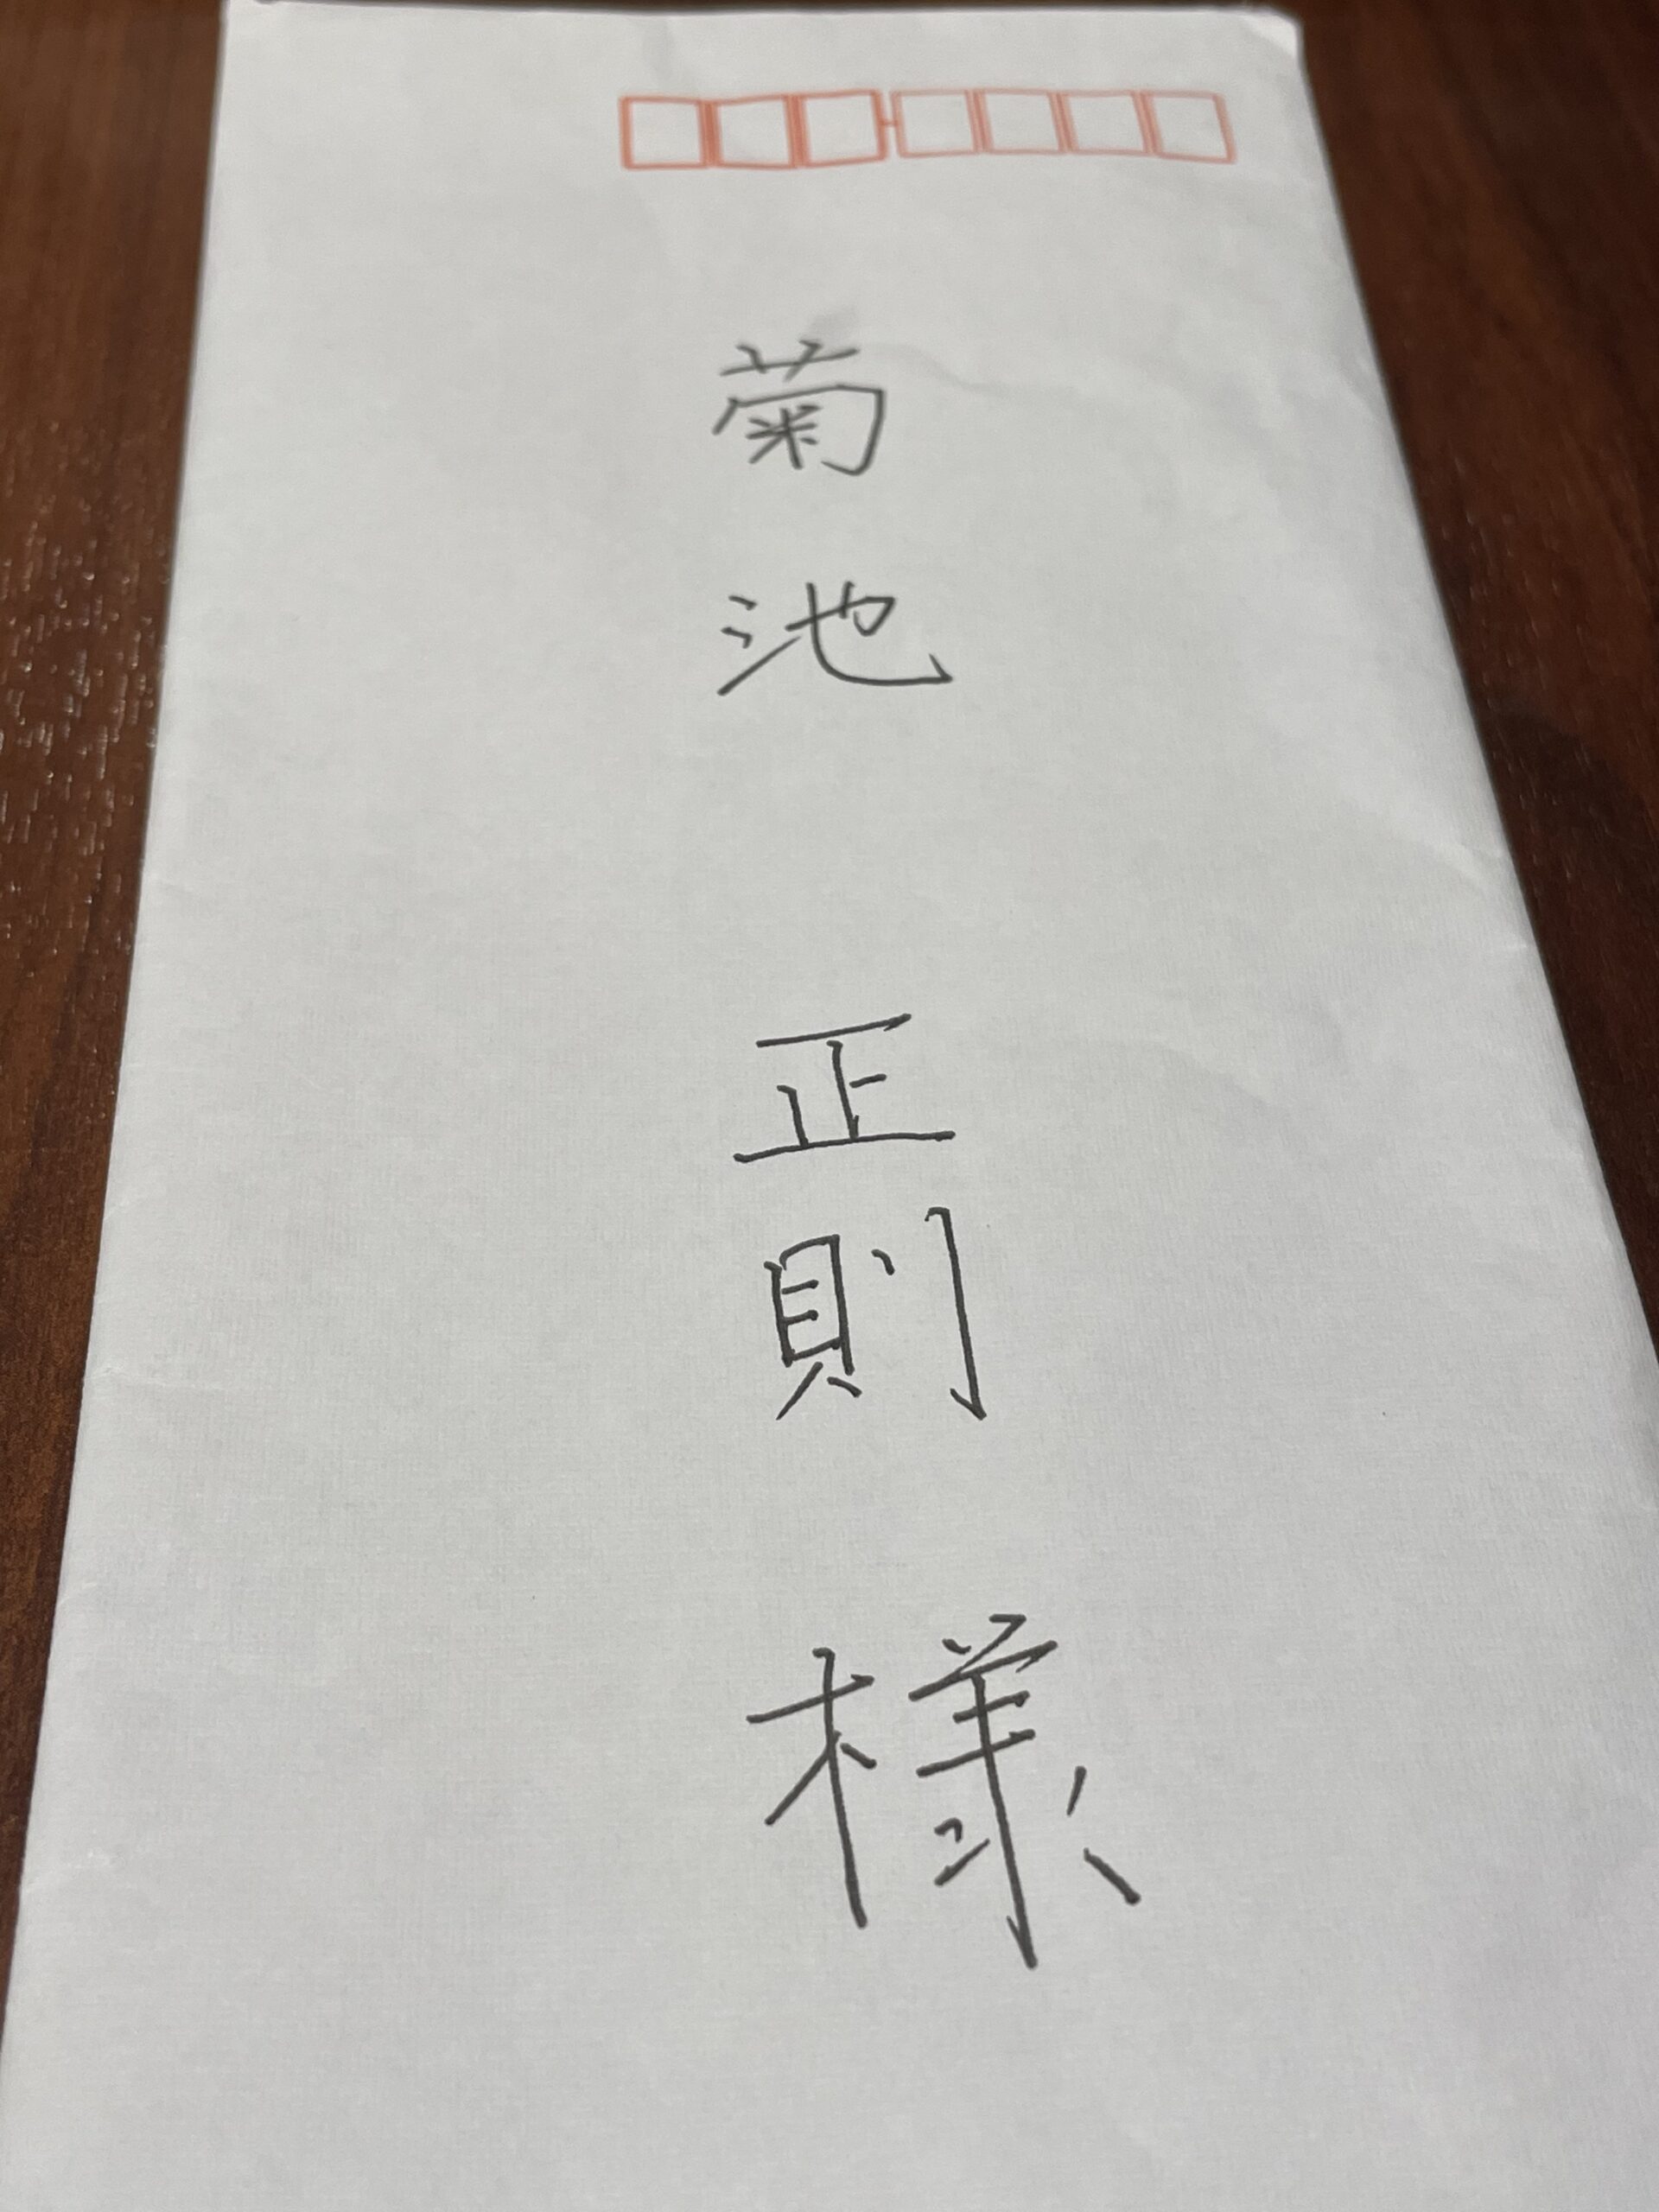 菊池 正則 様